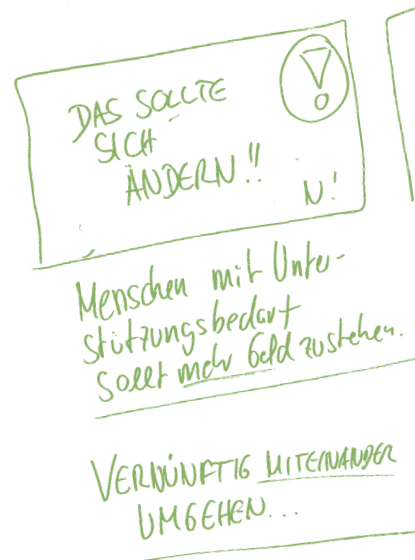 DAS SOLLTE
SICH
ÄNDERN!!
N!
Menschen mit Unter-
stützungsbedarf
Sollt mehr Geld zustehen.
VERNÜNFTIG MITEINANDER
UMGEHEN...